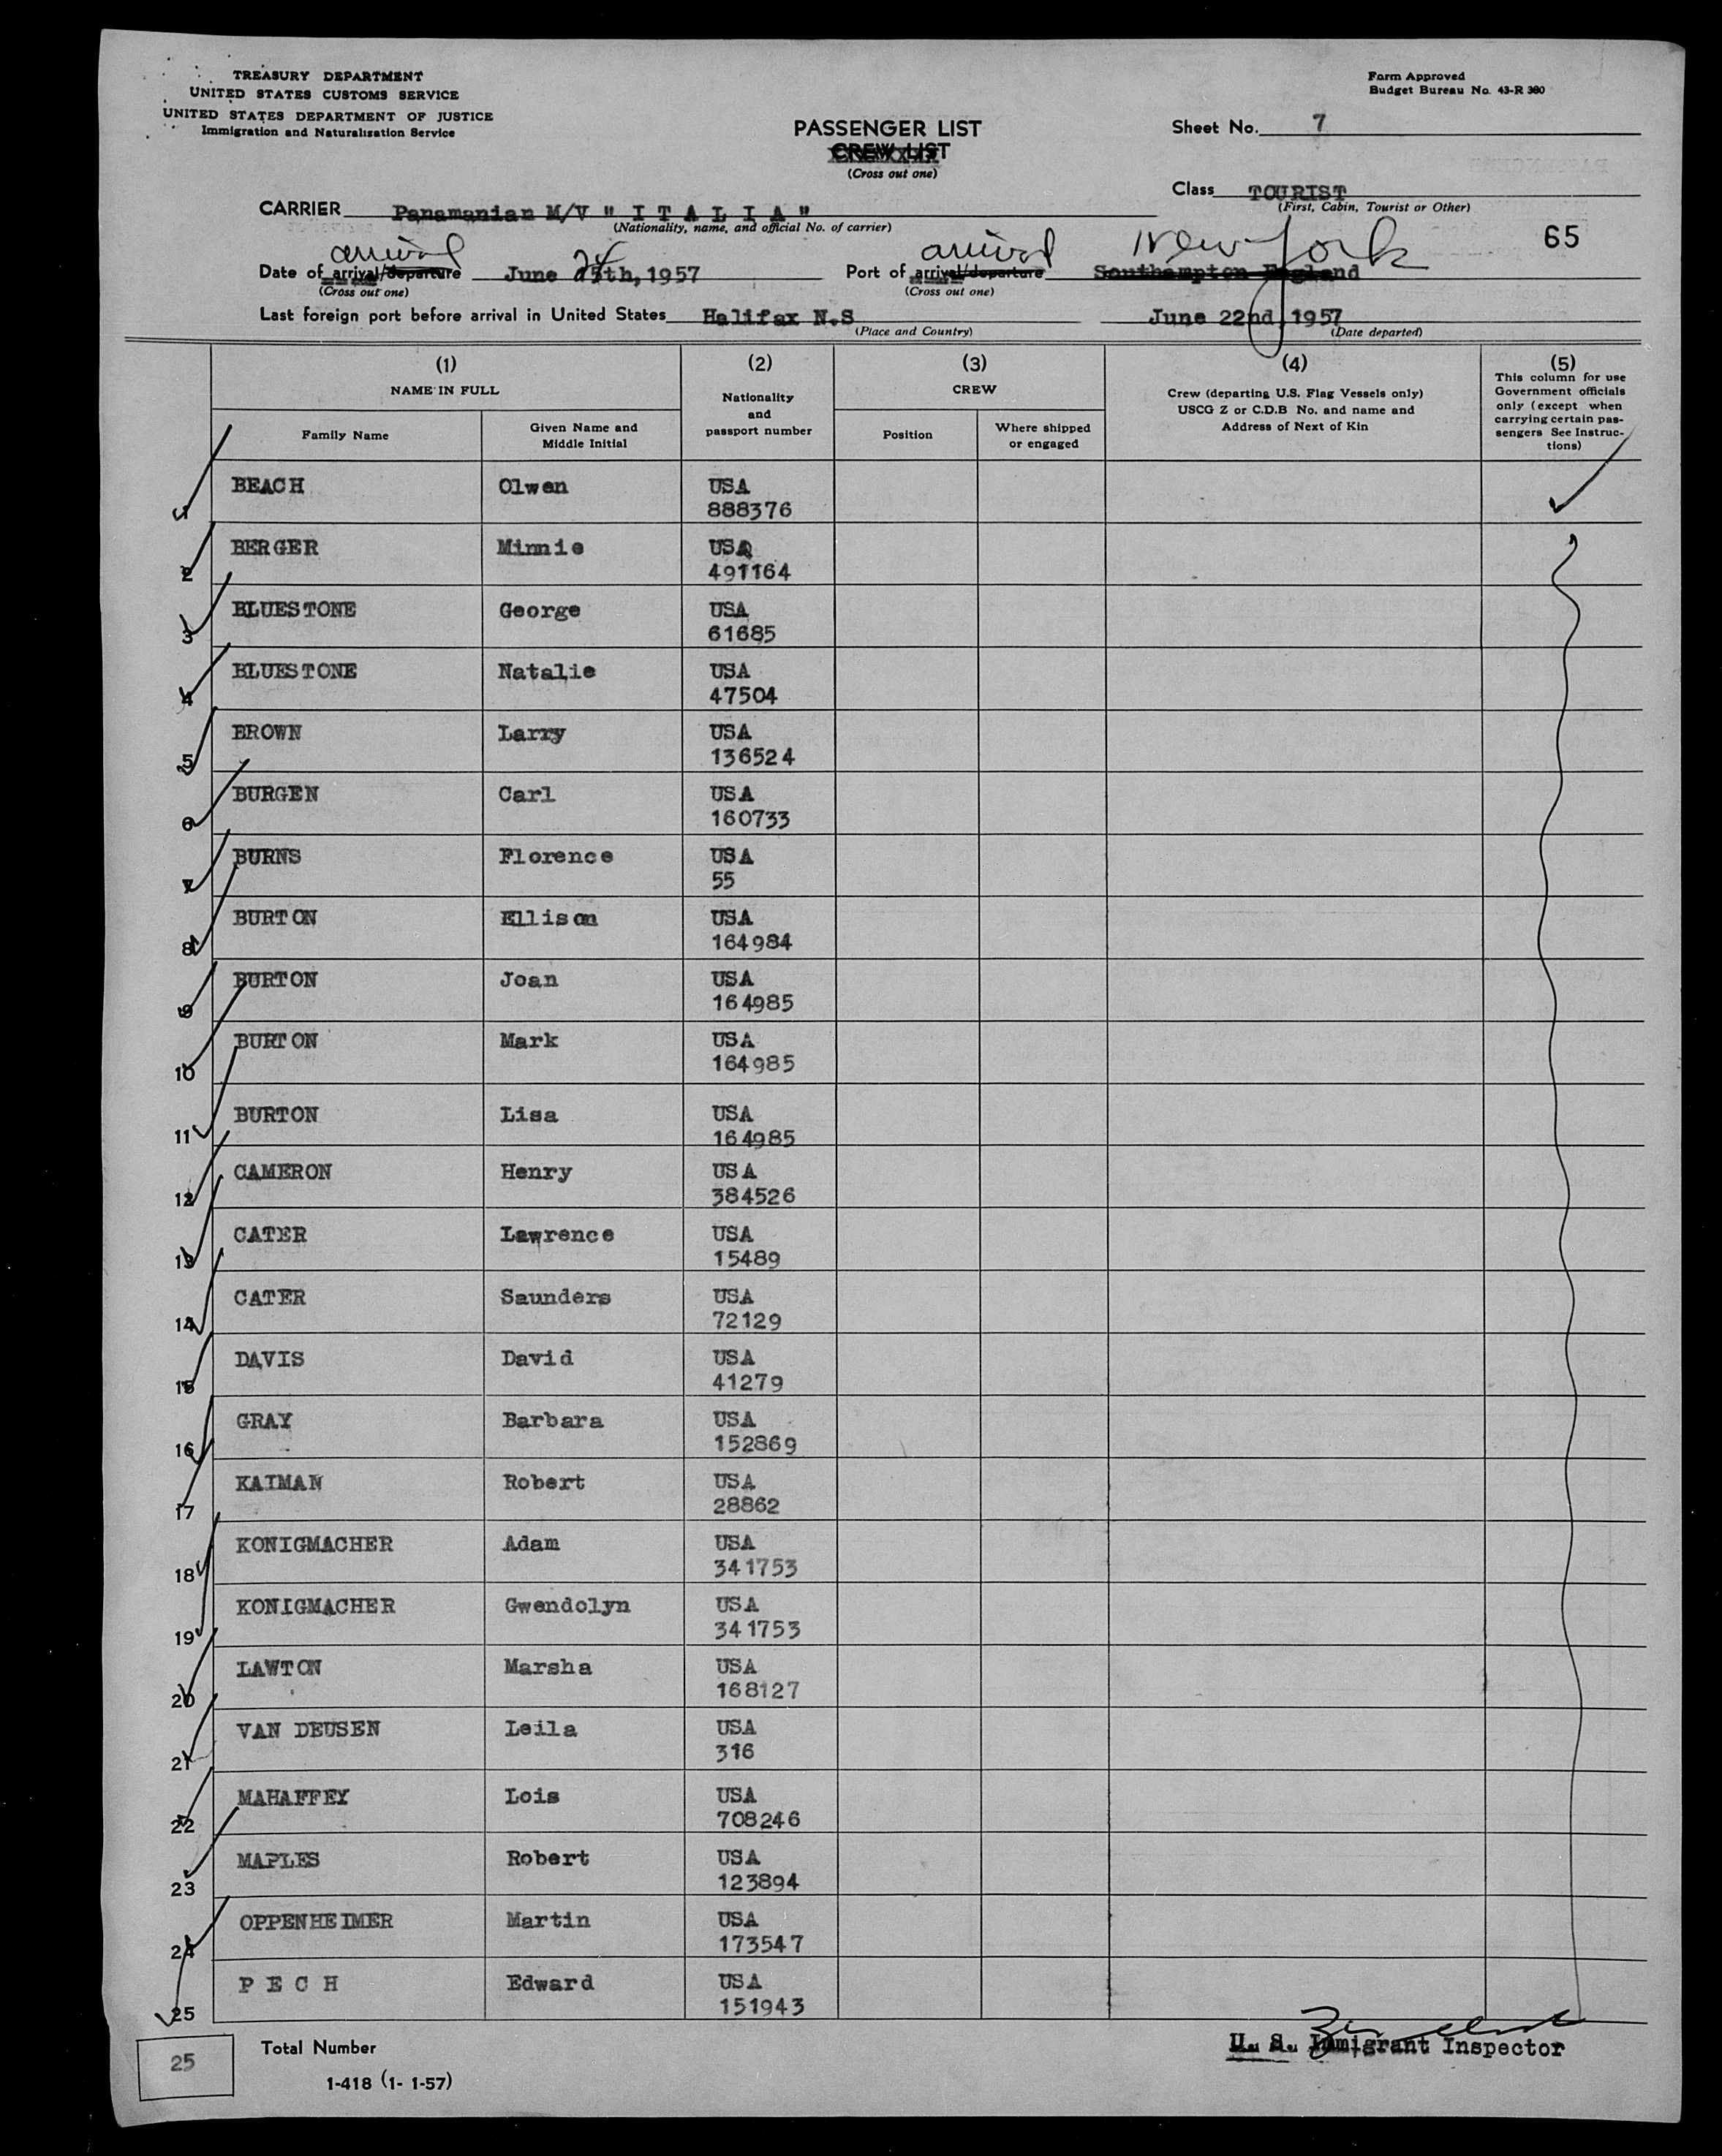 TREASURY DEPARTMENT
UNITED STATES CUSTOMS SERVICE
UNITED STATES DEPARTMENT OF JUSTICE
Immigration and Naturalization Service
Form Approved
Budget Bureau No. 43-R 380
PASSENGER LIST
CREW LIST
(Cross out one)
Sheet No. 7
Class TOURIST
(First, Cabin, Tourist or Other)
CARRIER Panamanian M/V " I T A L I A "
(Nationality, name, and official No. of carrier)
65
arrival arrival New York
Date of arrival/departure June 24 25th, 1957 Port of arrival/departure Southampton England
(Cross out one) (Cross out one)
Last foreign port before arrival in United States Halifax N.S June 22nd, 1957
(Place and Country) (Date departed)
(1) (2) (3) (4) (5)
NAME IN FULL
Family Name
Given Name and Middle Initial
Nationality and passport number
CREW
Position
Where shipped or engaged
Crew (departing U.S. Flag Vessels only)
USCG Z or C.D.B No. and name and
Address of Next of Kin
This column for use
Government officials
only (except when
carrying certain pas-
sengers See Instruc-
tions)
1 BEACH Olwen USA
888376
2 BERGER Minnie USA
491164
3 BLUESTONE George USA
61685
4 BLUESTONE Natalie USA
47504
5 BROWN Larry USA
136524
6 BURGEN Carl USA
160733
7 BURNS Florence USA
55
8 BURTON Ellison USA
164984
9 BURTON Joan USA
164985
10 BURTON Mark USA
164985
11 BURTON Lisa USA
164985
12 CAMERON Henry USA
384526
13 CATER Lawrence USA
15489
14 CATER Saunders USA
72129
15 DAVIS David USA
41279
16 GRAY Barbara USA
152869
17 KAIMAN Robert USA
28862
18 KONIGMACHER Adam USA
341753
19 KONIGMACHER Gwendolyn USA
341753
20 LAWTON Marsha USA
168127
21 VAN DEUSEN Leila USA
316
22 MAHAFFEY Lois USA
708246
23 MAPLES Robert USA
123894
24 OPPENHEIMER Martin USA
173547
25 P E C H Edward USA
151943
25 Total Number
1-418 (1- 1-57)
U. S. Immigrant Inspector